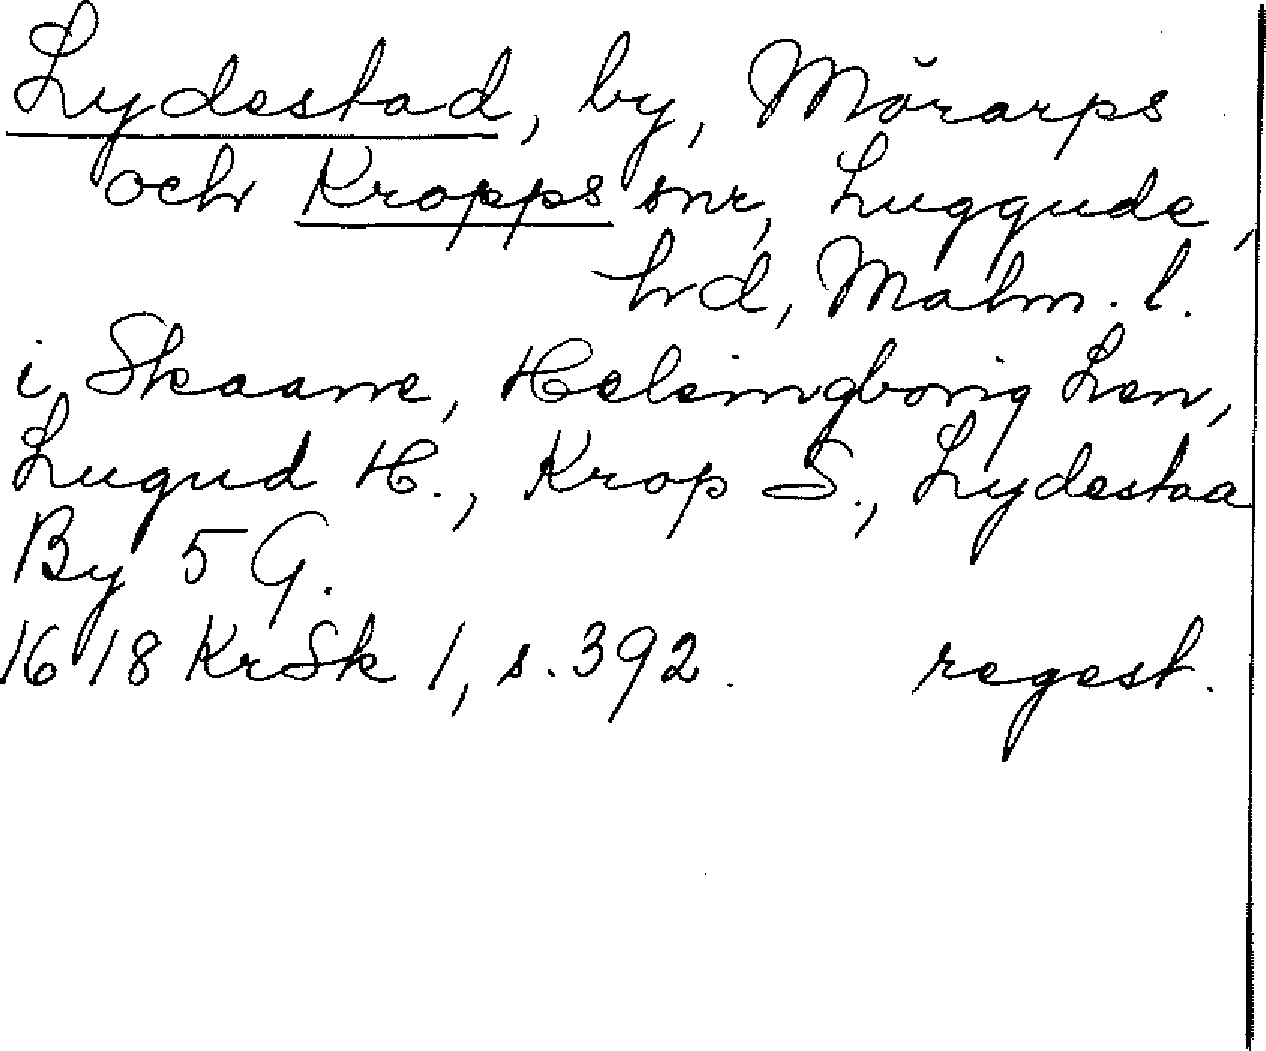 Lydestad, by, Mörarps
och Kropps snr, Luggude,
hd, Malm. l.
i Skaane, Helsingborig Len,
Lugud H., Krop S., Lydestaa
By 5 G.
1618 KrSk 1, s. 392. regest.